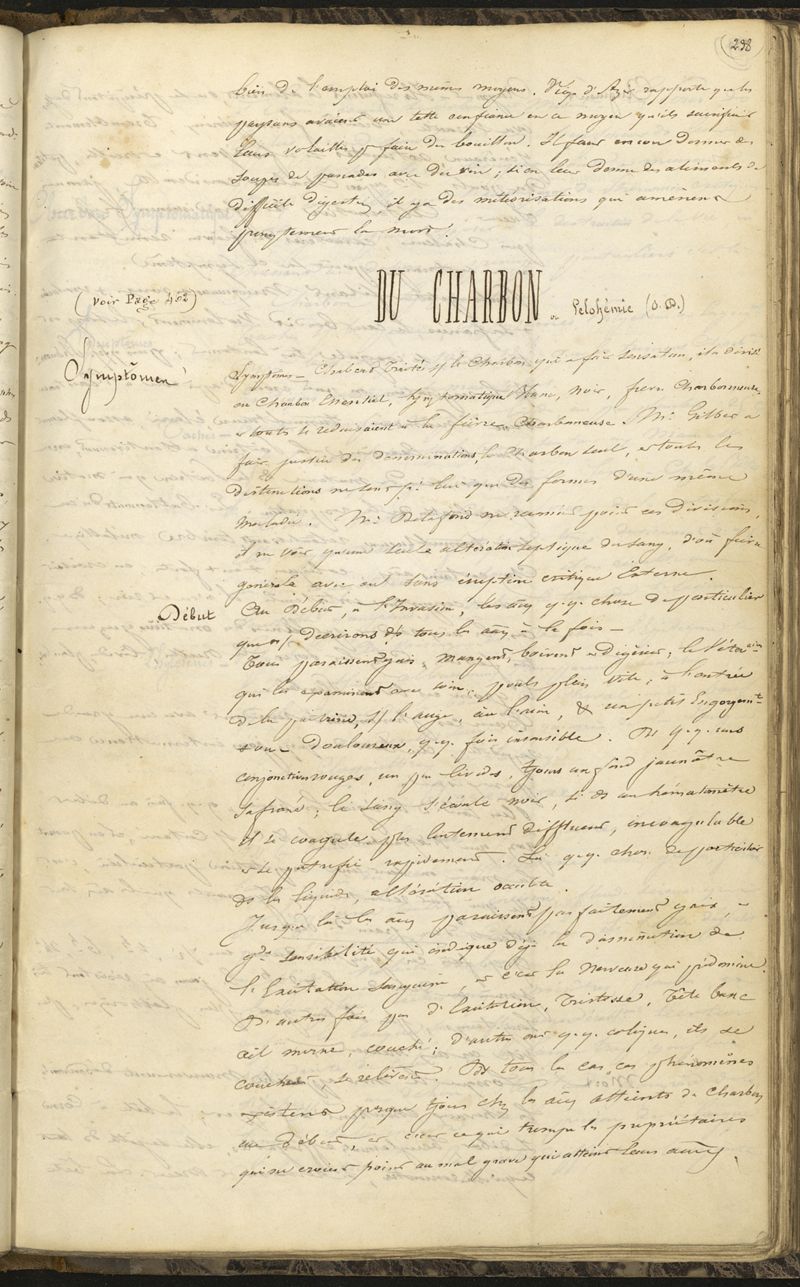 298
bien de l'emploi des mêmes moyens. Vicq d'Azir rapporte que les
paysans avaient une telle confiance en ce moyen qu'ils sacrifiaient
leurs volailles pr faire du bouillon. Il faut encore donner des
soupes de panades avec du vin ; si on leur donne des aliments de
difficile digestion, il y a des météorisations qui amènent
promptement la mort.
DU CHARBON ou Pelohémie (O. D.)
(Voir Page 402)
Symptômes
Symptômes – Chabert Traités s/ le Charbon qui a fait sensation, il a divisé
en Charbon Essentiel, Symptomatique blanc, noir, fièvre Charbonneuse,
et toutes se réduisaient à la fièvre Charbonneuse. Mr Gilbert a
fait justice des dénominations, le Charbon seul, et toutes les
distinctions ne sont pr lui que des formes d'une même
maladie. Mr Delafond ne reconnait point ces divisions,
il ne voit qu'une seule altération septique du sang, d'où fièvre
générale avec ou sans éruption critique Externe.
Début
Au Début, à l'Invasion, les aux q.q. chose de particulier
que ns décrirons ds tous les aux à la fois –
Tous paraissent gais, mangent, boivent et digèrent ; le Vétérin
qui les examinent avec soin, pouls plein vite ; à l'entrée
de la poitrine, s/ l'auge, à l'aine, & un petit Engorgemt
douloureux, q.q. fois insensible. Ds q.q. uns
conjonctives rouges, un peu livides, tjours un fond jaunâtre
safrané ; le sang s'écoule noir, si ds un hématomètre
il se coagule plus lentement diffluent, incoagulable
et se putréfie rapidement. Là q.q. chose de particulier
ds les liquides, altération occulte.
Jusque là les aux paraissent parfaitement gais,
gde sensibilité qui indique déjà la diminution de
l'Excitation sanguine, et c'est la nerveuse qui prédomine.
D'autres fois peu d'Excitation, Tristesse, Tête basse
œil morne, couché ; d'autres ont q.q. coliques, ils se
couchent se relèvent. Ds tous les cas, ces phénomènes
existent presque tjours chez les aux atteints de Charbon
au début, et c'est ce qui trompe les propriétaires
qui ne croient point au mal grave qui atteint leurs aux.